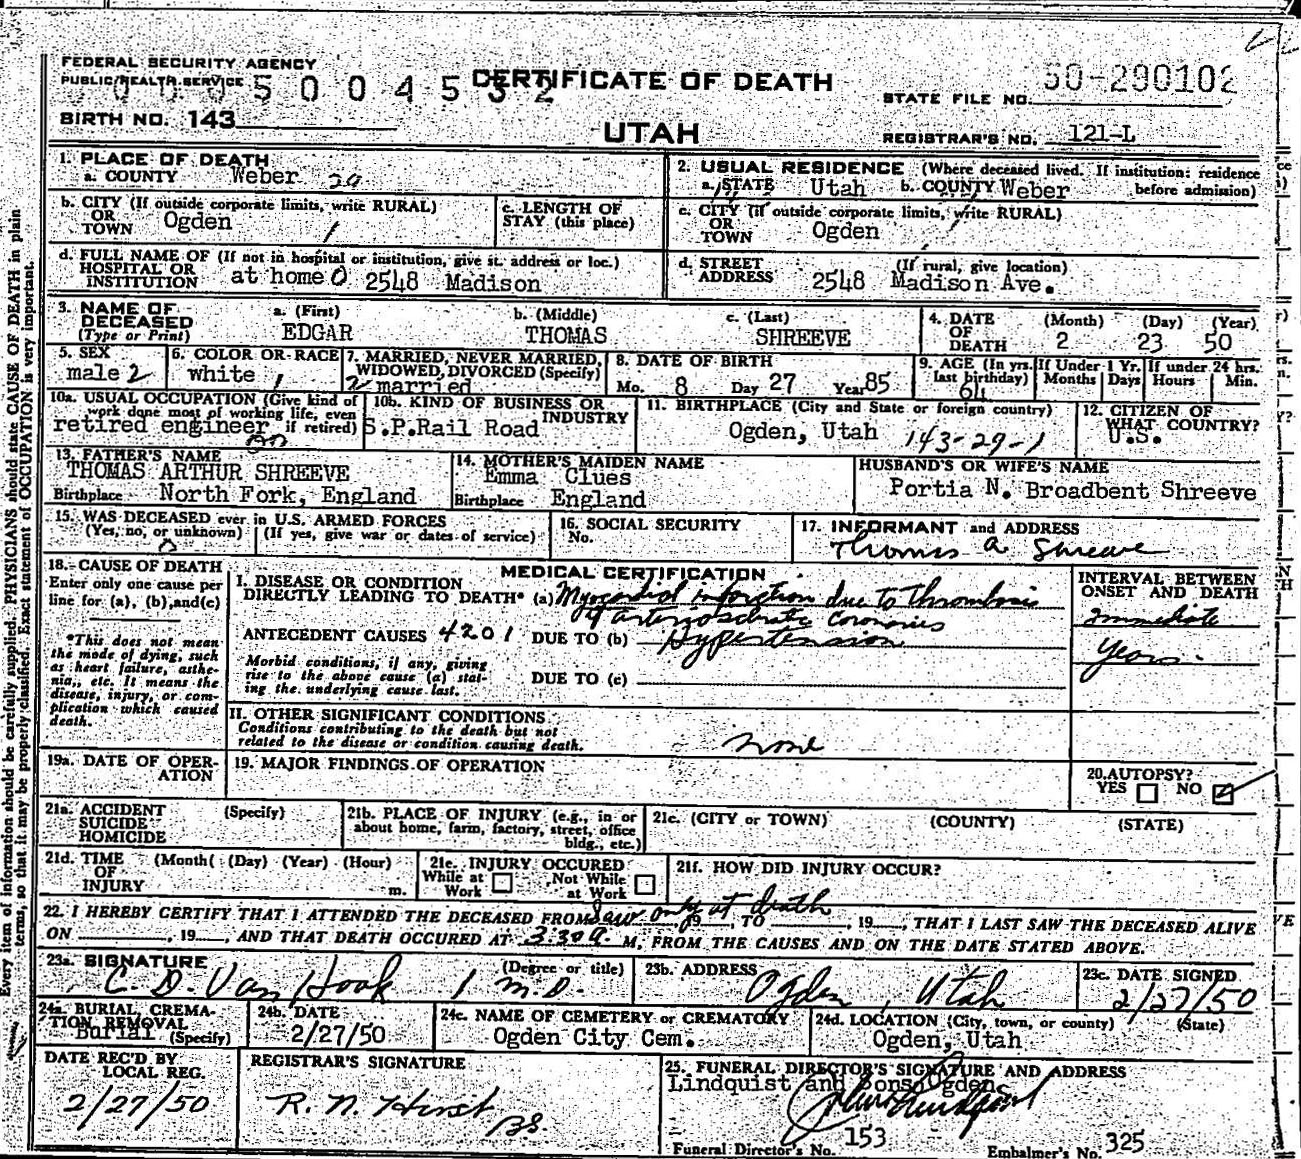 FEDERAL SECURITY AGENCY
PUBLIC HEALTH SERVICE
5004532
CERTIFICATE OF DEATH
UTAH
50-290102
STATE FILE NO.
BIRTH NO. 143
REGISTRAR'S NO. 121-L
1. PLACE OF DEATH
a. COUNTY Weber 29
2. USUAL RESIDENCE (Where deceased lived. If institution: residence before admission)
a. STATE Utah b. COUNTY Weber
b. CITY (If outside corporate limits, write RURAL) OR TOWN Ogden 1
c. LENGTH OF STAY (this place)
c. CITY (If outside corporate limits, write RURAL) OR TOWN Ogden
d. FULL NAME OF (If not in hospital or institution, give st. address or loc.) HOSPITAL OR INSTITUTION at home 0 2548 Madison
d. STREET ADDRESS (If rural, give location) 2548 Madison Ave.
3. NAME OF DECEASED (Type or Print)
a. (First) EDGAR
b. (Middle) THOMAS
c. (Last) SHREEVE
4. DATE OF DEATH (Month) (Day) (Year) 2 23 50
5. SEX male 2
6. COLOR OR RACE white 1
7. MARRIED, NEVER MARRIED, WIDOWED, DIVORCED (Specify) 2 married
8. DATE OF BIRTH Mo. 8 Day 27 Year 85
9. AGE (In yrs. last birthday) 64
If Under 1 Yr. Months Days
If under 24 hrs. Hours Min.
10a. USUAL OCCUPATION (Give kind of work done most of working life, even if retired) retired engineer
10b. KIND OF BUSINESS OR INDUSTRY S.P.Rail Road
11. BIRTHPLACE (City and State or foreign country) Ogden, Utah 143-29-1
12. CITIZEN OF WHAT COUNTRY? U.S.
13. FATHER'S NAME
THOMAS ARTHUR SHREEVE
Birthplace North Fork, England
14. MOTHER'S MAIDEN NAME
Emma Clues
Birthplace England
HUSBAND'S OR WIFE'S NAME
Portia N. Broadbent Shreeve
15. WAS DECEASED ever in U.S. ARMED FORCES
(Yes, no, or unknown) (If yes, give war or dates of service)
0
16. SOCIAL SECURITY No.
17. INFORMANT and ADDRESS
Thomas A. Shreeve
18. CAUSE OF DEATH
Enter only one cause per line for (a), (b), and (c)
*This does not mean the mode of dying, such as heart failure, asthenia, etc. It means the disease, injury, or complication which caused death.
MEDICAL CERTIFICATION
I. DISEASE OR CONDITION DIRECTLY LEADING TO DEATH* (a) Myocardial infarction due to thrombosis
of arteriosclerotic coronaries
ANTECEDENT CAUSES 4201 DUE TO (b) Hypertension
Morbid conditions, if any, giving rise to the above cause (a) stating the underlying cause last.
DUE TO (c)
INTERVAL BETWEEN ONSET AND DEATH
Immediate
Years
II. OTHER SIGNIFICANT CONDITIONS
Conditions contributing to the death but not related to the disease or condition causing death.
none
19a. DATE OF OPERATION
19. MAJOR FINDINGS OF OPERATION
20. AUTOPSY?
YES NO
21a. ACCIDENT SUICIDE HOMICIDE (Specify)
21b. PLACE OF INJURY (e.g., in or about home, farm, factory, street, office bldg., etc.)
21c. (CITY or TOWN) (COUNTY) (STATE)
21d. TIME OF INJURY (Month) (Day) (Year) (Hour) m.
21e. INJURY OCCURED While at Work Not While at Work
21f. HOW DID INJURY OCCUR?
22. I HEREBY CERTIFY THAT I ATTENDED THE DECEASED FROM Saw only at death 19 , TO , 19 , THAT I LAST SAW THE DECEASED ALIVE
ON , 19 , AND THAT DEATH OCCURED AT 3:30 a. M, FROM THE CAUSES AND ON THE DATE STATED ABOVE.
23a. SIGNATURE (Degree or title)
C. D. Van Hook 1 M.D.
23b. ADDRESS
Ogden, Utah
23c. DATE SIGNED
2/27/50
24a. BURIAL, CREMATION, REMOVAL (Specify) Burial
24b. DATE
2/27/50
24c. NAME OF CEMETERY or CREMATORY
Ogden City Cem.
24d. LOCATION (City, town, or county) (State)
Ogden, Utah
DATE REC'D BY LOCAL REG.
2/27/50
REGISTRAR'S SIGNATURE
R. N. Hirst
25. FUNERAL DIRECTOR'S SIGNATURE AND ADDRESS
Lindquist and Sons Ogden
Funeral Director's No. 153
Embalmer's No. 325
Every item of information should be carefully supplied. PHYSICIANS should state CAUSE OF DEATH in plain
terms, so that it may be properly classified. Exact statement of OCCUPATION is very important.